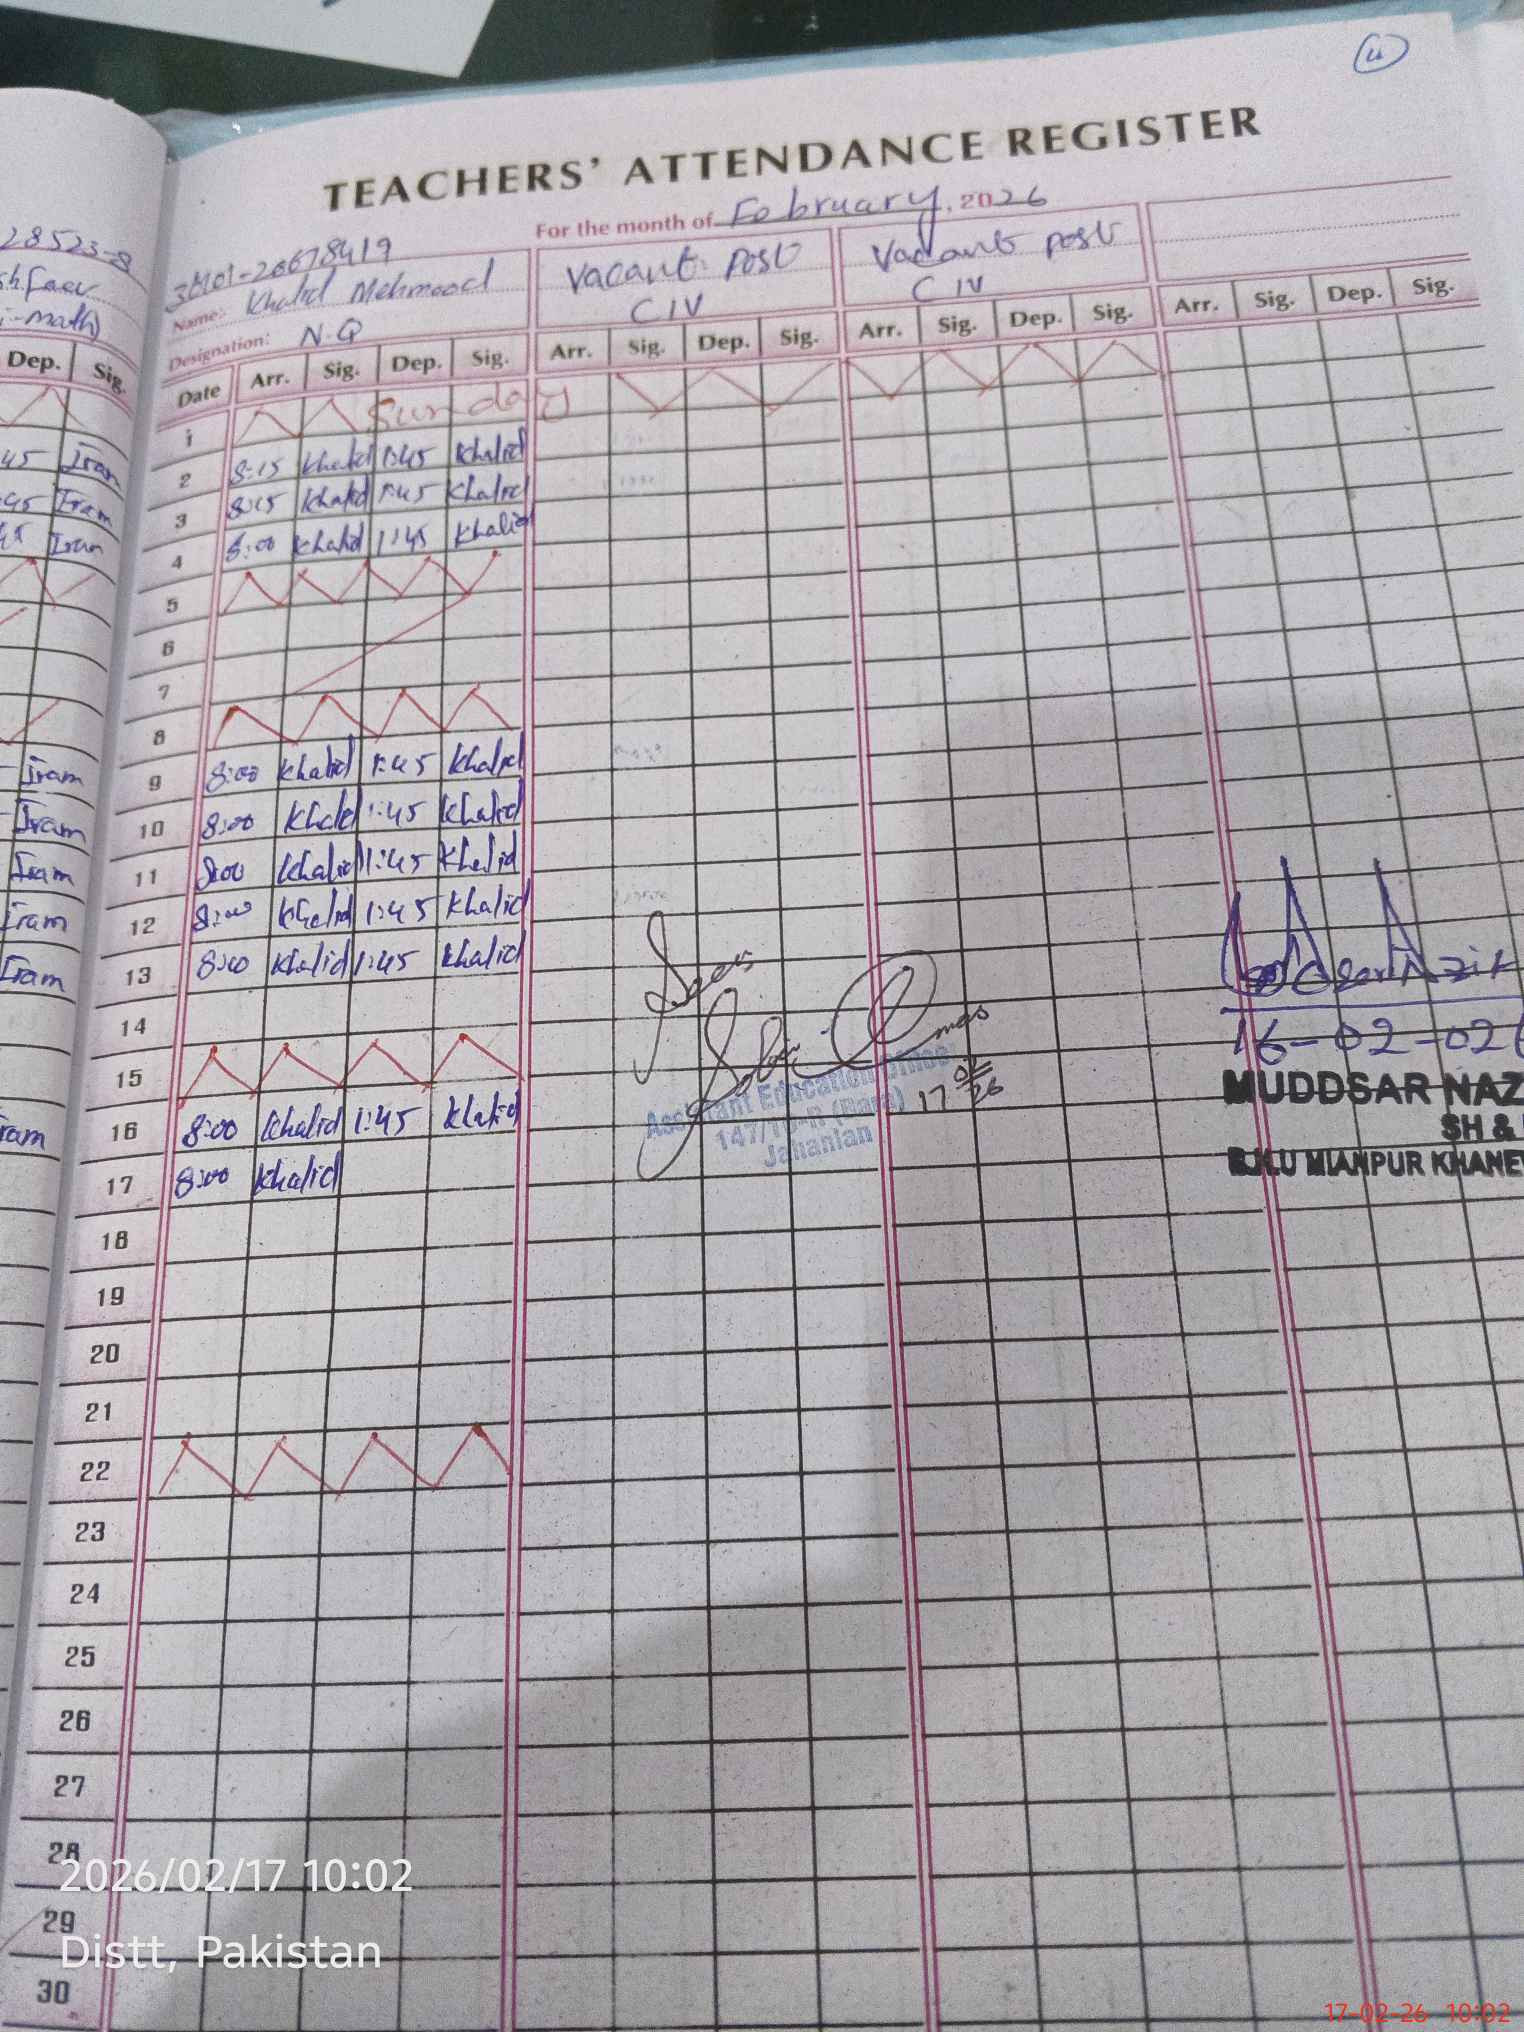 TEACHERS' ATTENDANCE REGISTER
For the month of February, 2026
28523-8
Name: Khalid Mehmood
Designation: N.Q
Vacant Post
CIV
Vacant post
CIV
Dep. Sig.
Date Arr. Sig. Dep. Sig. Arr. Sig. Dep. Sig. Arr. Sig. Dep. Sig. Arr. Sig. Dep. Sig.
1 Sunday
45 Iram 2 8:15 Khalid 1:45 Khalid
45 Iram 3 8:15 Khalid 1:45 Khalid
45 Iram 4 8:00 Khalid 1:45 Khalid
5
6
7
8
Iram 9 8:00 Khalid 1:45 Khalid
Iram 10 8:00 Khalid 1:45 Khalid
Iram 11 8:00 Khalid 1:45 Khalid
Iram 12 8:00 Khalid 1:45 Khalid
Iram 13 8:00 Khalid 1:45 Khalid
14
15
ram 16 8:00 Khalid 1:45 Khalid
17 8:00 Khalid
18
19
20
21
22
23
24
25
26
27
28
29
30
Assistant Education Office
Jahanian
17 02 26
16-02-026
MUDDSAR NAZ
SH &
B.H.U MIANPUR KHANEW
2026/02/17 10:02
Distt, Pakistan
17-02-26 10:02